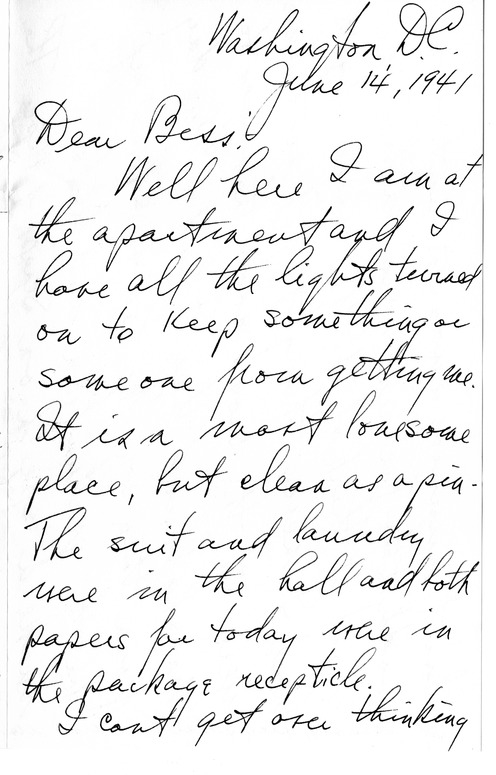 Washington, D.C.
June 14, 1941
Dear Bess:
Well here I am at
the apartment and I
have all the lights turned
on to keep something or
someone from getting me.
It is a most lonesome
place, but clean as a pin.
The suit and laundry
were in the hall and both
papers for today were in
the package recepticle.
I cant get over thinking